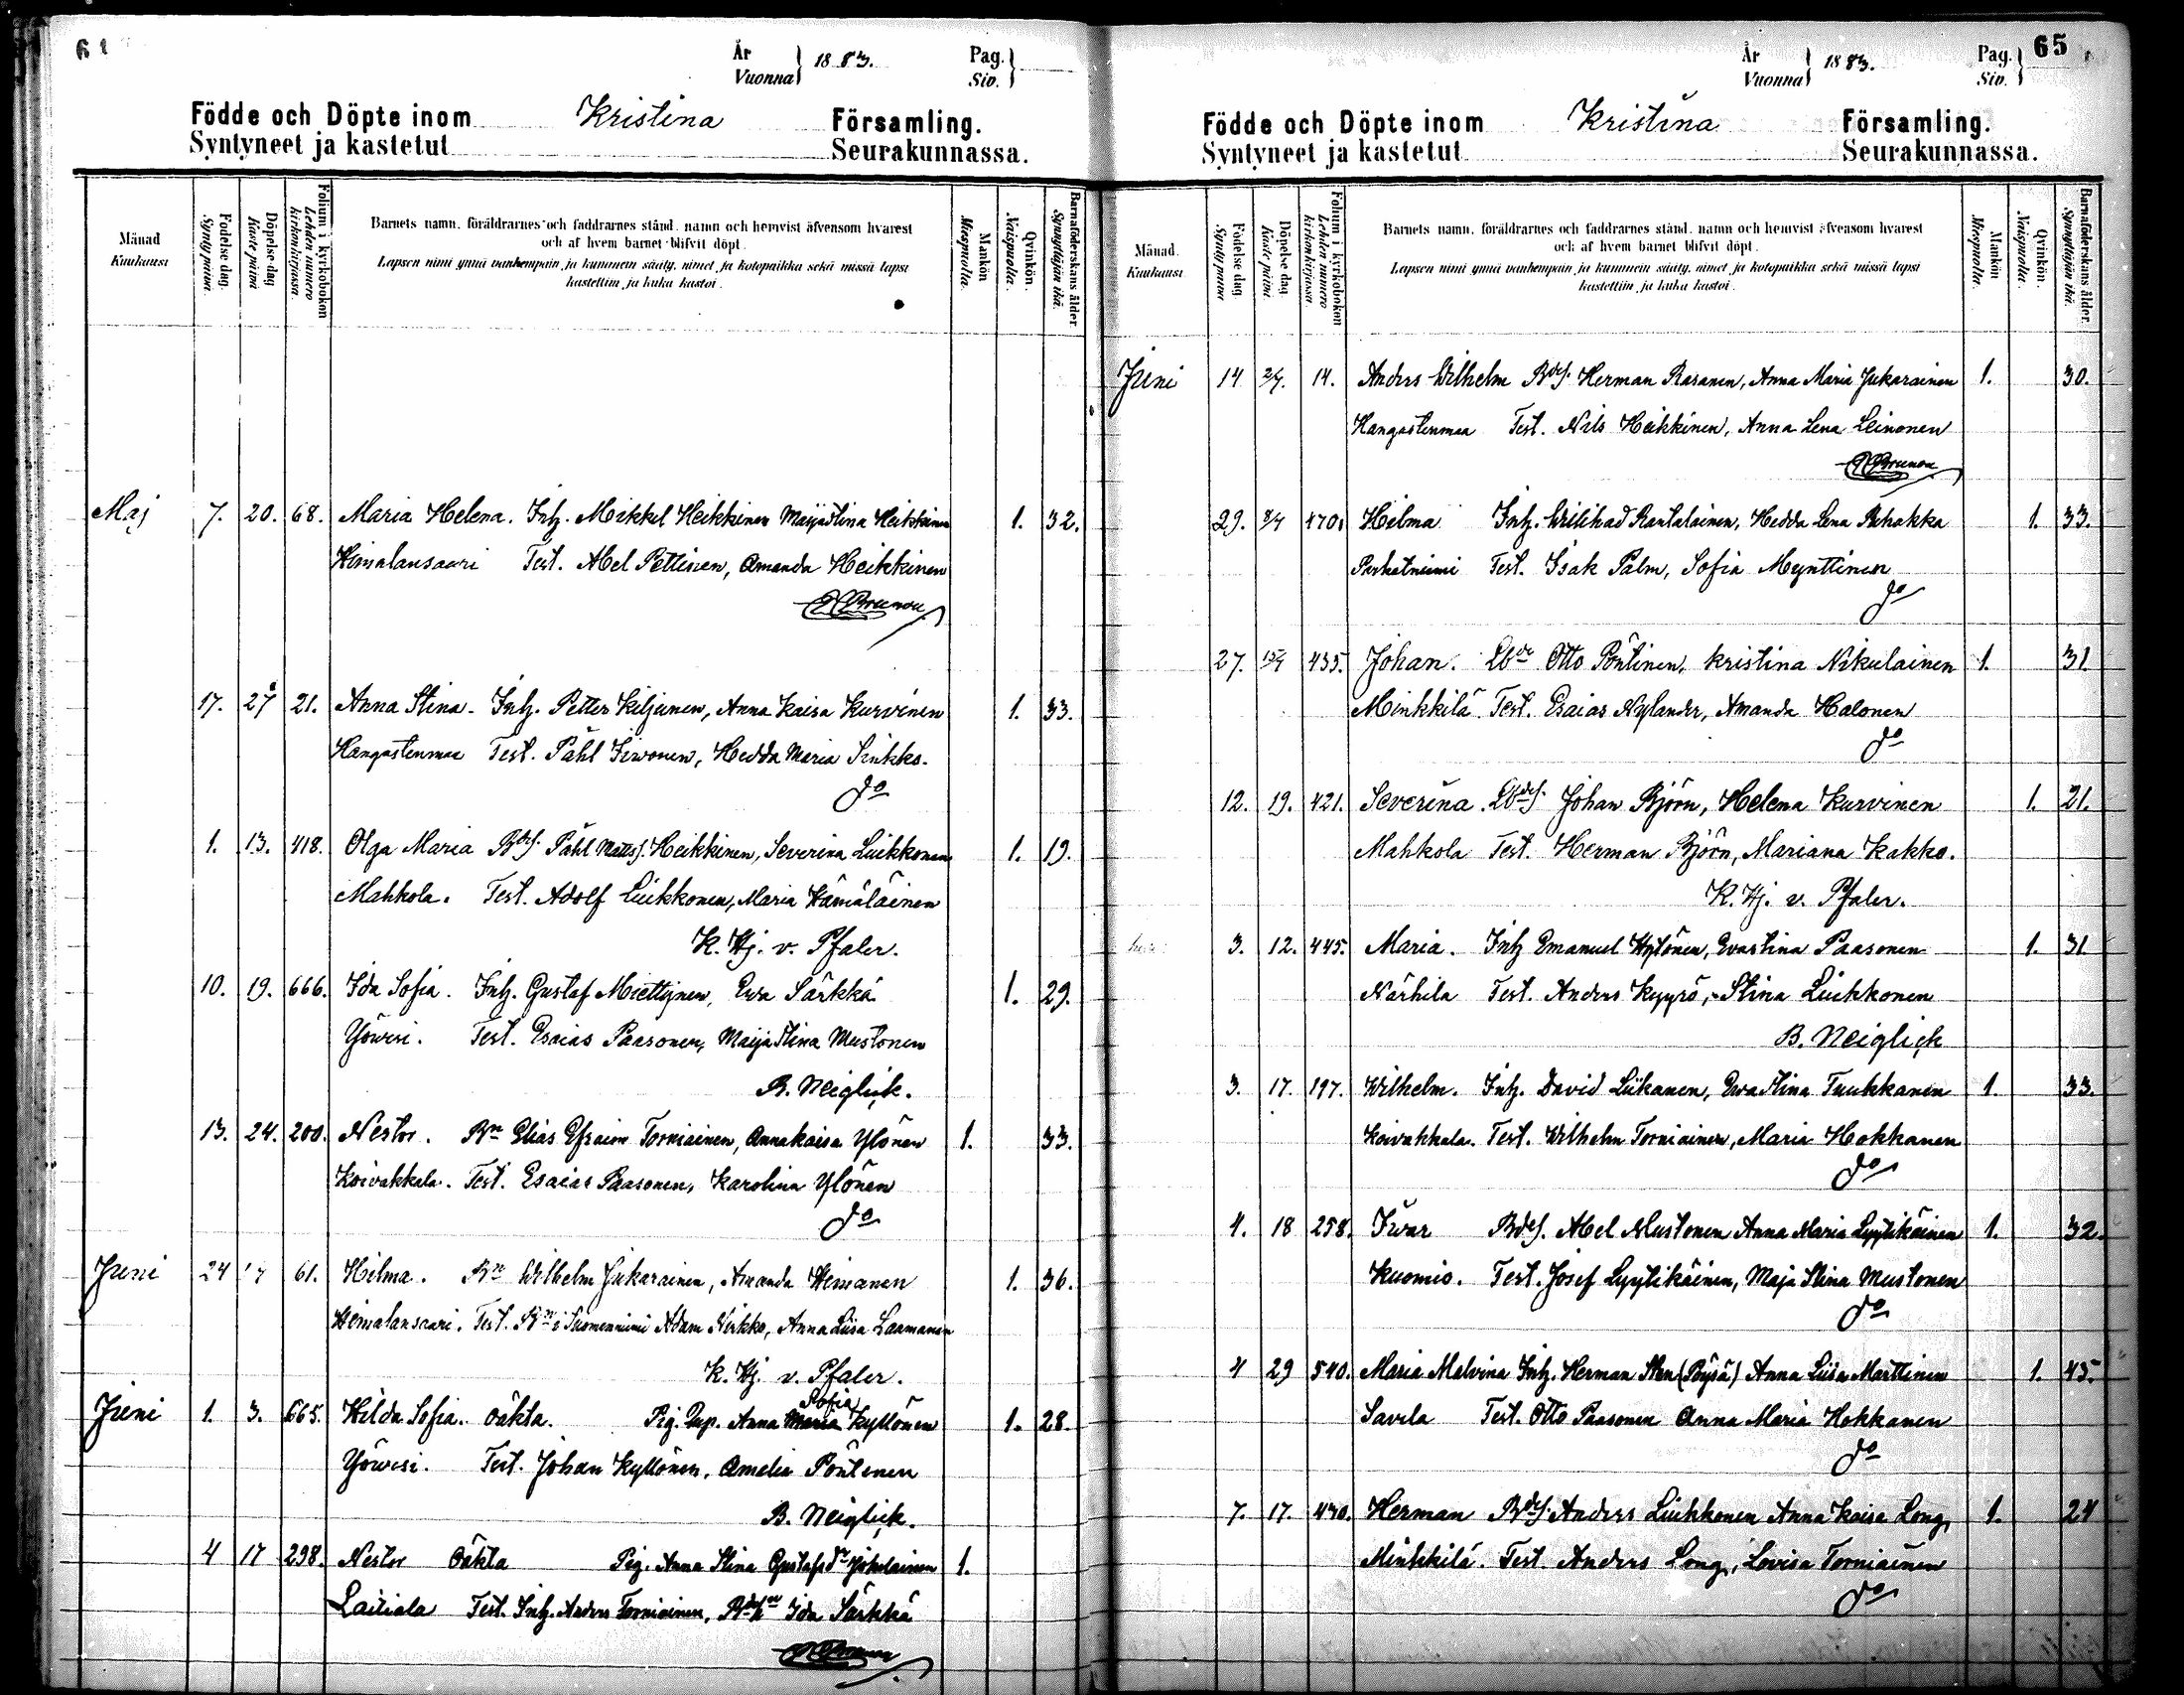 64
År
Vuonna
1883.
Pag.
Siv.
Födde och Döpte inom Kristina Församling.
Syntyneet ja kastetut Seurakunnassa.
Månad
Kuukausi
Födelse dag.
Synty päivä.
Döpelse dag
Kaste päivä
Folium i kyrkoboken
Lehden numero kirkonkirjassa.
Barnets namn, föräldrarnes och faddrarnes stånd, namn och hemvist äfvensom hvarest
och af hvem barnet blifvit döpt.
Lapsen nimi ynnä vanhempain ja kummein sääty, nimet ja kotopaikka sekä missä lapsi
kastettiin ja kuka kastoi.
Mankön
Miespuolia.
Qvinkön.
Naispuolia.
Barnaföderskans ålder.
Synnyttäjän ikä.
Maj 7. 20. 68. Maria Helena. Inh. Mikkel Heikkinen Maija Stina Heikkinen 1. 32.
Himalansaari Test. Abel Pettinen, Amanda Heikkinen
Brunou
17. 27 21. Anna Stina. Inh. Petter Kiljunen, Anna Kaisa Kurvinen 1. 33.
Hangastenmaa Test. Påhl Hirvonen, Hedda Maria Sinkko.
do
1. 13. 418. Olga Maria Bds. Påhl Mattss. Heikkinen, Severina Liukkonen 1. 19.
Mahkola. Test. Adolf Liukkonen, Maria Hämäläinen
K. Hj. v. Pfaler.
10. 19. 666. Ida Sofia. Inh. Gustaf Miettynen, Eva Särkkä 1. 29.
Yövesi. Test. Esaias Paasonen, Maija Stina Mustonen
B. Neiglick.
13. 24. 200. Nestor. Bn Elias Efraim Torniainen, Anna Kaisa Ylönen 1. 33.
Koivakkala. Test. Esaias Paasonen, Karolina Ylönen
do
Juni 24 1/7 61. Hilma. Bn Wilhelm Jukarainen, Amanda Himanen 1. 36.
Himalansaari. Test. Bn i Suomenniemi Adam Nirkko, Anna Liisa Laamanen
K. Hj. v. Pfaler.
Sofia
Juni 1. 3. 665. Hilda Sofia. oäkta. Pig. Anna Maria Kyllönen 1. 28.
Yövesi. Test. Johan Kyllönen, Amelia Pöntinen
B. Neiglick.
4 17 298. Nestor Oäkta Pig. Anna Stina Gustafsdr 1.
Laitiala Test. Inh. Anders Torniainen, Ida Särkkä
Brunou
65
År
Vuonna
1883.
Pag.
Siv.
Födde och Döpte inom Kristina Församling.
Syntyneet ja kastetut Seurakunnassa.
Månad.
Kuukausi
Födelse dag.
Synty päivä
Döpelse dag
Kaste päivä.
Folium i kyrkoboken
Lehden numero kirkonkirjassa.
Barnets namn, föräldrarnes och faddrarnes stånd, namn och hemvist äfvensom hvarest
och af hvem barnet blifvit döpt.
Lapsen nimi ynnä vanhempain ja kummein sääty, nimet ja kotopaikka sekä missä lapsi
kastettiin ja kuka kastoi.
Mankön
Miespuolia.
Qvinkön.
Naispuolia.
Barnaföderskans ålder.
Synnyttäjän ikä.
Juni 14 2/7. 14. Anders Wilhelm Bds. Herman Rasanen, Anna Maria Jukarainen 1. 30.
Hangastenmaa Test. Nils Heikkinen, Anna Lena Leinonen
Brunou
29. 8/7 470. Hilma Inh. Wilihad Rantalainen, Hedda Lena Puhakka 1. 33.
Parkatniemi Test. Isak Palm, Sofia Mynttinen
do
27. 15/7 435. Johan. Lbr Otto Pöntinen, Kristina Nikulainen 1. 31
Minkkilä. Test. Esaias Nylander, Amanda Halonen
do
12. 19. 421. Severina. Lbds. Johan Björn, Helena Kurvinen 1. 21.
Mahkola Test. Herman Björn, Mariana Kakko.
K. Hj. v. Pfaler.
3. 12. 445. Maria. Inh Emanuel Hytönen, Eva Stina Paasonen 1. 31
Närhilä Test. Anders Kyyrö, Stina Liukkonen
B. Neiglick
3. 17. 197. Wilhelm. Inh. David Liikanen, Eva Stina Tuukkanen 1. 33.
Koivakkala. Test. Wilhelm Torniainen, Maria Hokkanen
do
4. 18 258. Iwar Bds. Abel Mustonen Anna Maria Lyytikäinen 1. 32.
Kuomio. Test. Josef Lyytikäinen, Maja Stina Mustonen
do
4 29 540. Maria Malvina Inh. Herman Sten (Pöysä) Anna Liisa Marttinen 1. 45.
Savela Test. Otto Paasonen Anna Maria Hokkanen
do
7. 17. 430. Herman Bds. Anders Liukkonen Anna Kaisa Long, 1. 24
Minkkilä. Test. Anders Long, Lovisa Torniainen
do